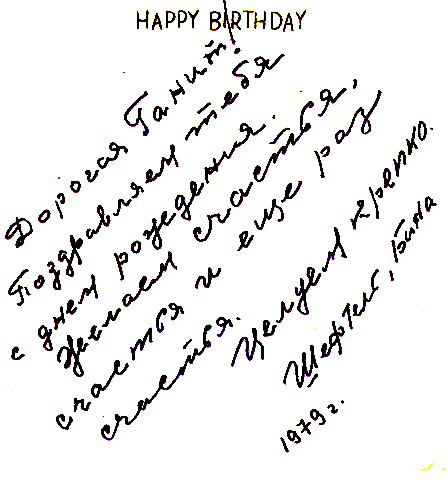 HAPPY BIRTHDAY
Дорогая Ганит!
Поздравляем тебя
с днем рождения.
Желаем счастья,
счастья и еще раз
счастья.
Целуем крепко.
Шефтель, Бина
1979 г.